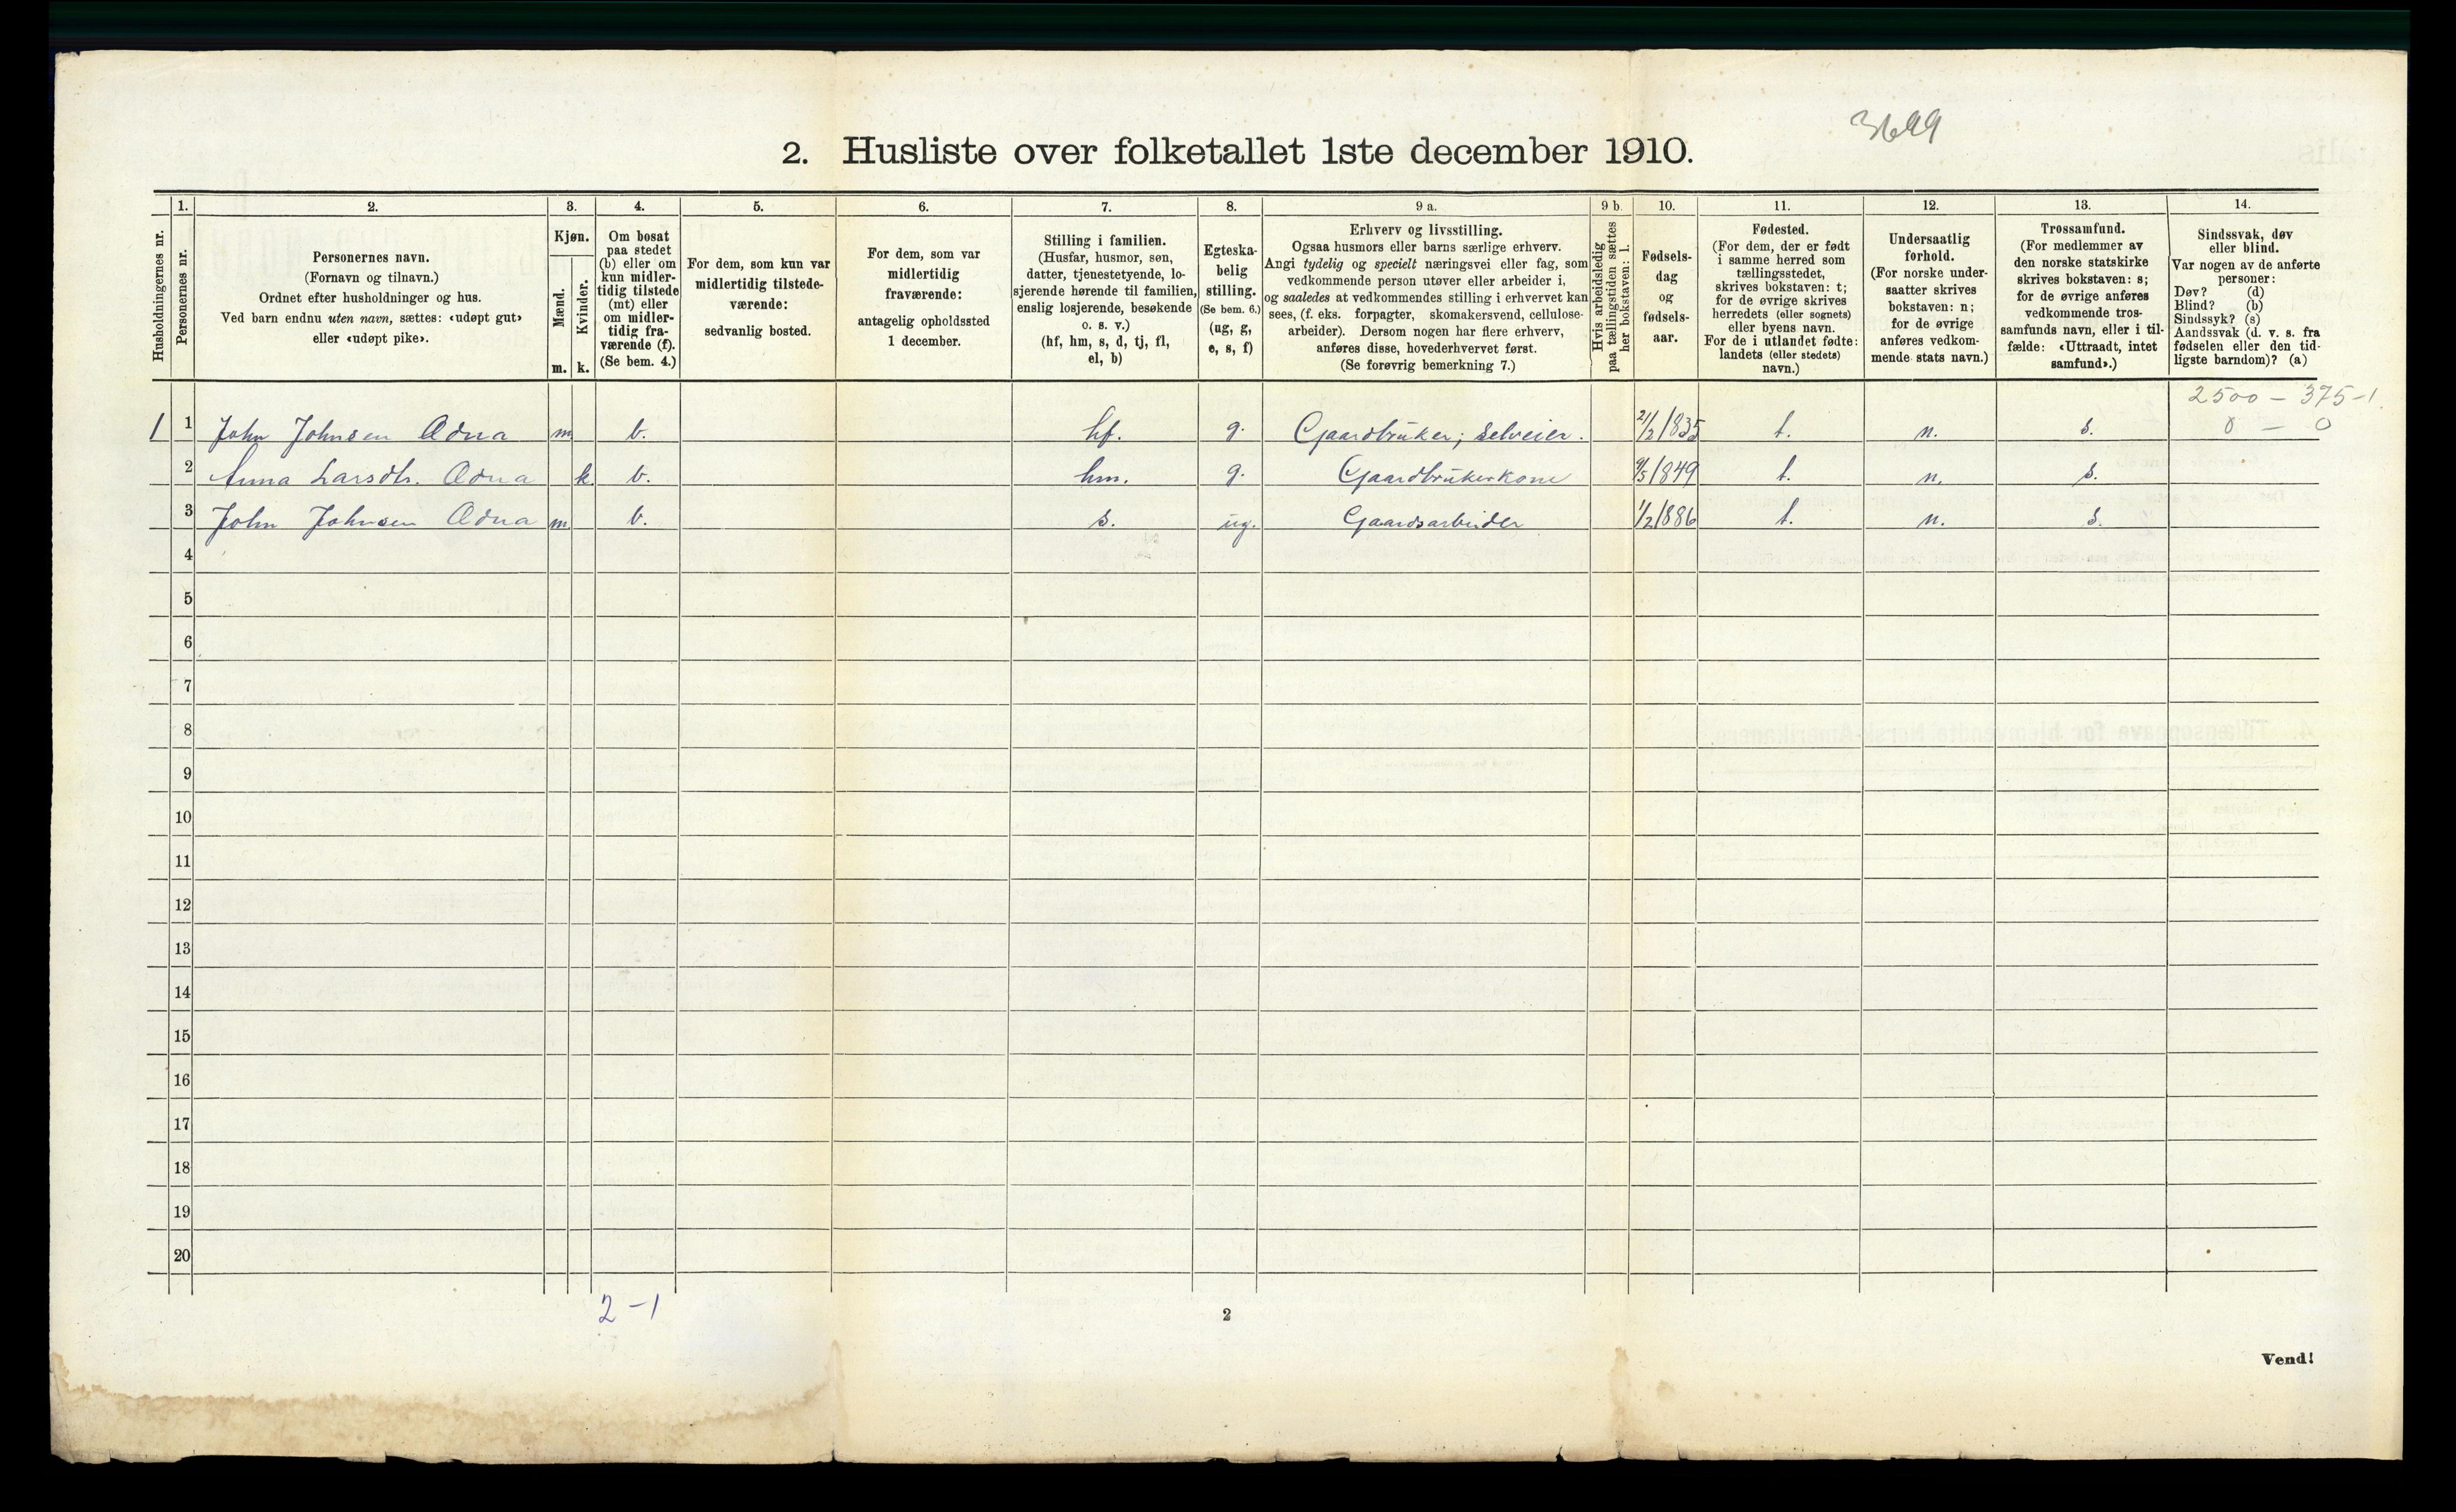 3699
2. Husliste over folketallet 1ste december 1910.
Husholdningernes nr.
1.
Personernes nr.
2.
Personernes navn.
(Fornavn og tilnavn.)
Ordnet efter husholdninger og hus.
Ved barn endnu uten navn, sættes: «udøpt gut»
eller «udøpt pike».
3.
Kjøn.
Mænd.
m.
Kvinder.
k.
4.
Om bosat
paa stedet
(b) eller om
kun midler-
tidig tilstede
(mt) eller
om midler-
tidig fra-
værende (f).
(Se bem. 4.)
5.
For dem, som kun var
midlertidig tilstede-
værende:
sedvanlig bosted.
6.
For dem, som var
midlertidig
fraværende:
antagelig opholdssted
1 december.
7.
Stilling i familien.
(Husfar, husmor, søn,
datter, tjenestetyende, lo-
sjerende hørende til familien,
enslig losjerende, besøkende
o. s. v.)
(hf, hm, s, d, tj, fl,
el, b)
8.
Egteska-
belig
stilling.
(Se bem. 6.)
(ug, g,
e, s, f)
9 a.
Erhverv og livsstilling.
Ogsaa husmors eller barns særlige erhverv.
Angi tydelig og specielt næringsvei eller fag, som
vedkommende person utøver eller arbeider i,
og saaledes at vedkommendes stilling i erhvervet kan
sees, (f. eks. forpagter, skomakersvend, cellulose-
arbeider). Dersom nogen har flere erhverv,
anføres disse, hovederhvervet først.
(Se forøvrig bemerkning 7.)
9 b.
Hvis arbeidsledig
paa tællingstiden sættes
her bokstaven: l.
10.
Fødsels-
dag
og
fødsels-
aar.
11.
Fødested.
(For dem, der er født
i samme herred som
tællingsstedet,
skrives bokstaven: t;
for de øvrige skrives
herredets (eller sognets)
eller byens navn.
For de i utlandet fødte:
landets (eller stedets)
navn.)
12.
Undersaatlig
forhold.
(For norske under-
saatter skrives
bokstaven: n;
for de øvrige
anføres vedkom-
mende stats navn.)
13.
Trossamfund.
(For medlemmer av
den norske statskirke
skrives bokstaven: s;
for de øvrige anføres
vedkommende tros-
samfunds navn, eller i til-
fælde: «Uttraadt, intet
samfund».)
14.
Sindssvak, døv
eller blind.
Var nogen av de anførte
personer:
Døv? (d)
Blind? (b)
Sindssyk? (s)
Aandssvak (d. v. s. fra
fødselen eller den tid-
ligste barndom)? (a)
2500 - 375-1.
1 1 John Johnsen Ødna m b. hf. g. Gaardbruker; selveier. 21/2 1835 t. n. s. 0 - 0
2 Anna Larsdtr. Ødna k b. hm. g. Gaardbrukerkone 9/5 1849 t. n. s.
3 John Johnsen Ødna m b. s. ug. Gaardsarbeider 1/2 1886 t. n. s.
4
5
6
7
8
9
10
11
12
13
14
15
16
17
18
19
20
2 - 1
2
Vend!